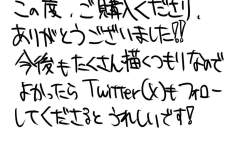 この度、ご購入くださり、
ありがとうございました!!
今後もたくさん描くつもりなので
よかったら Twitter(X)もフォロー
してくださると うれしいです!